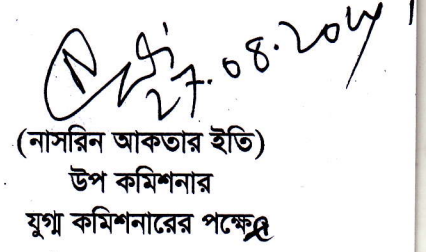 27.08.2024
(নাসরিন আকতার ইতি)
উপ কমিশনার
যুগ্ম কমিশনারের পক্ষে